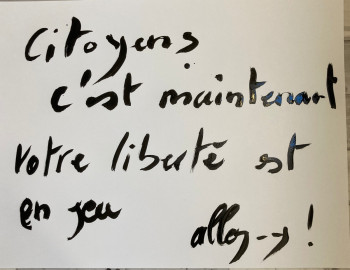 Citoyens
c'est maintenant
votre liberté est
en jeu
allez-y !